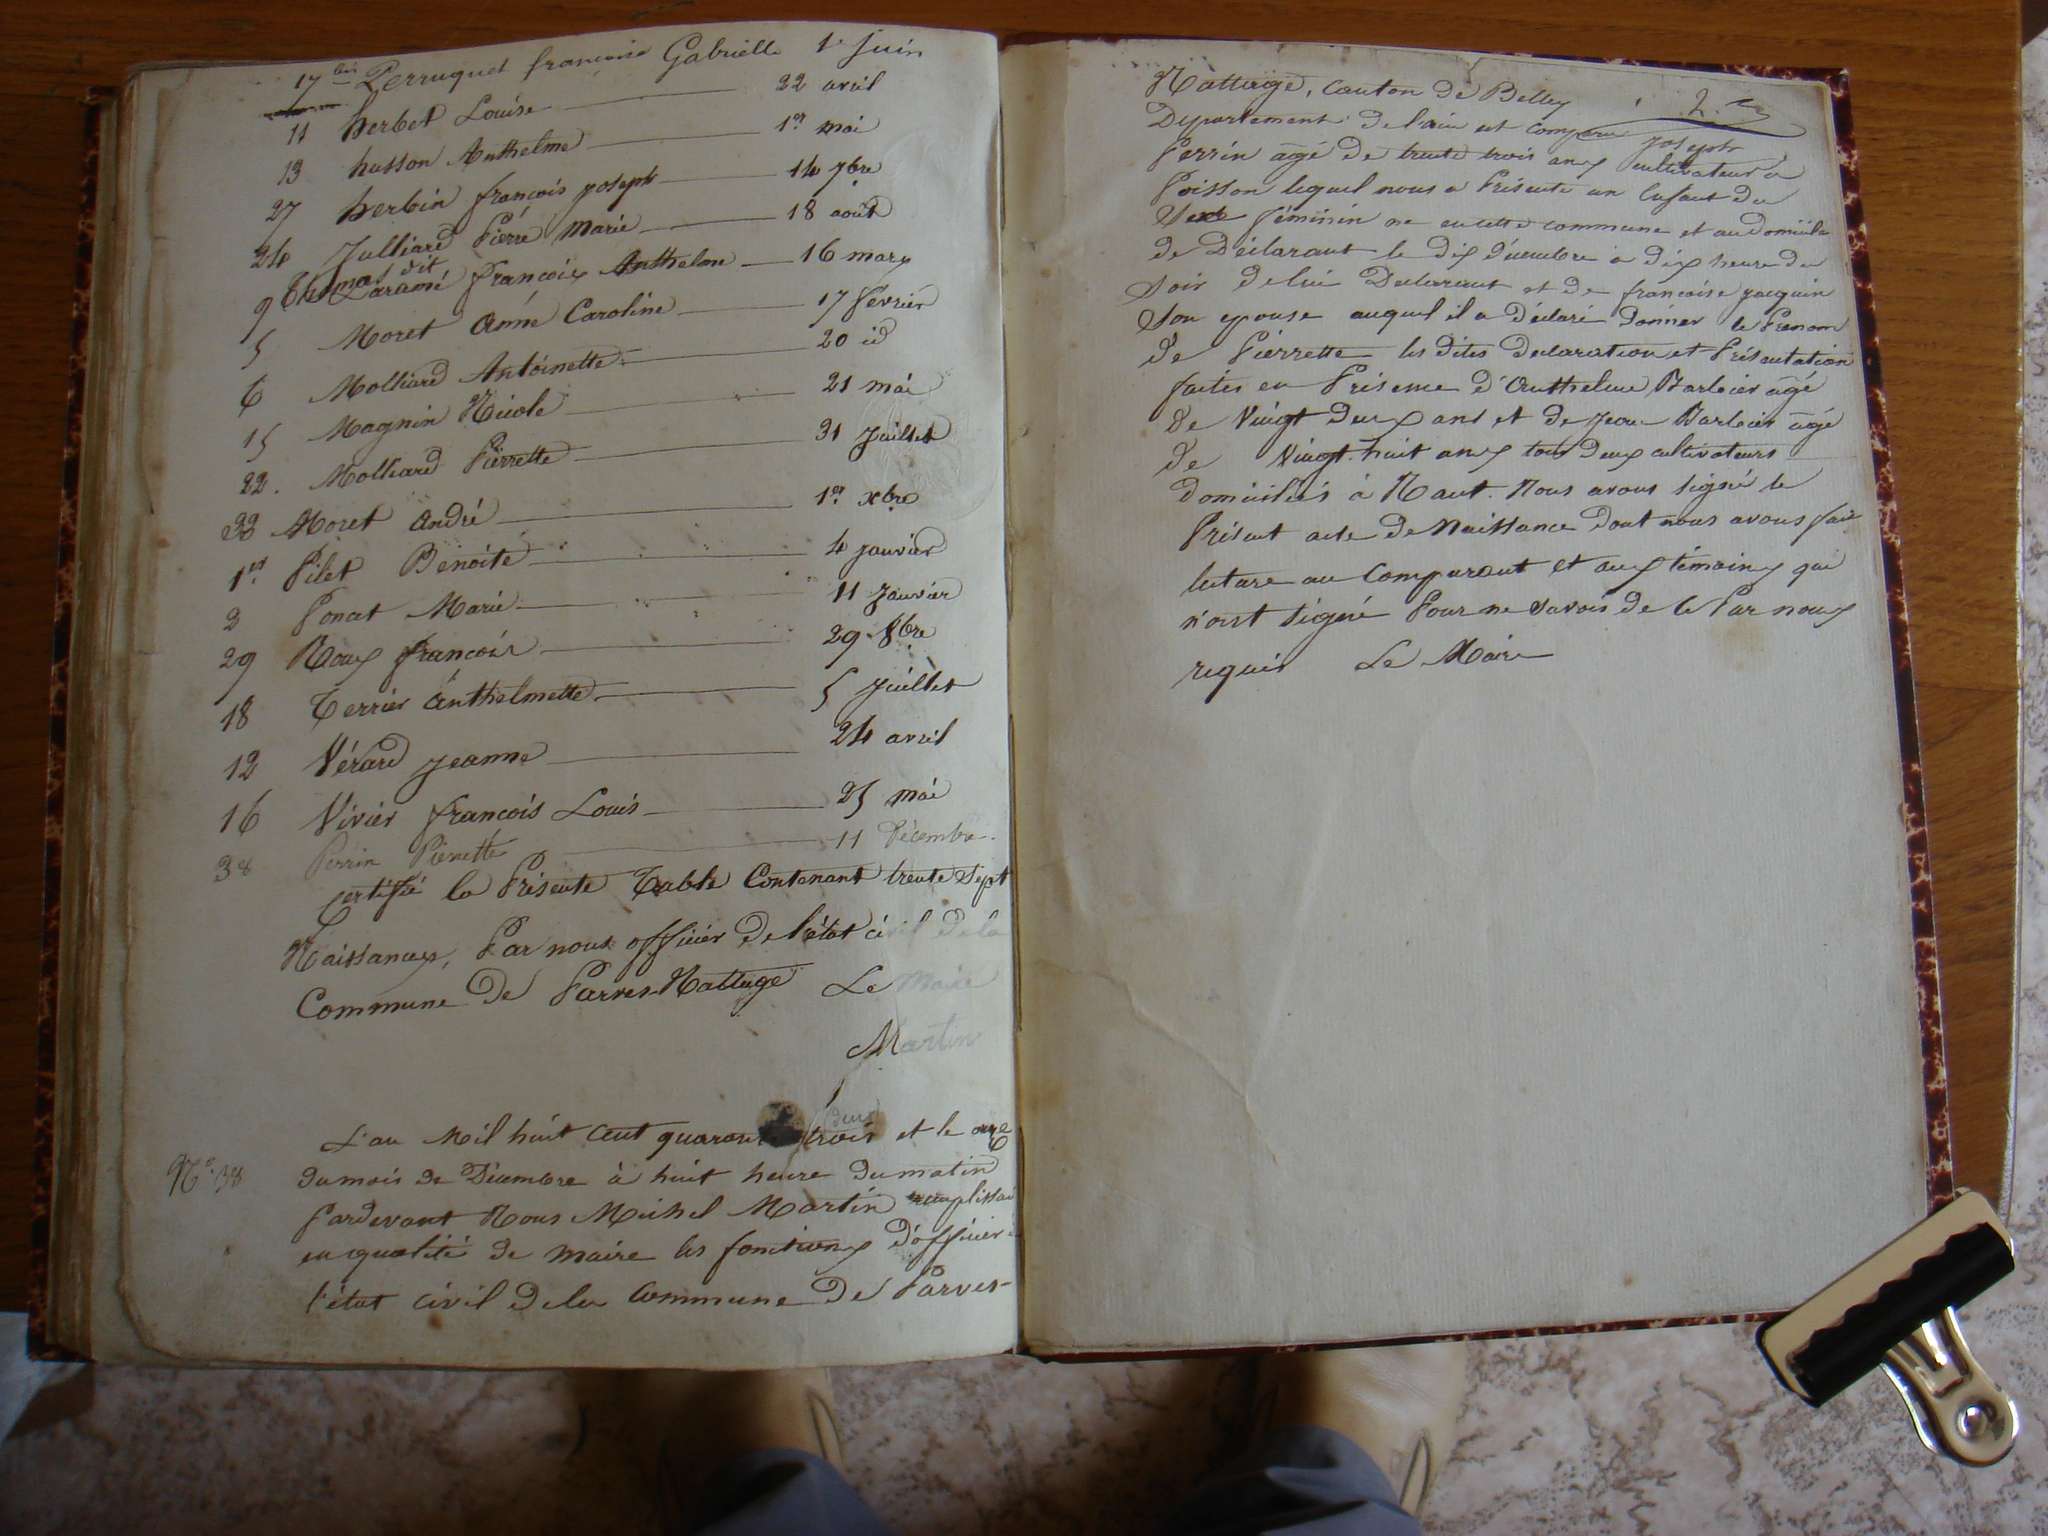 17 bis Perruquet francoise Gabrielle 1er Juin
11 herbet Louise 22 avril
13 husson Anthelme 1er mai
27 herbin françois joseph 14 7bre
24 Julliard Pierre Marie 18 août
9 Thomas dit Laramé françois Anthelme 16 mars
5 Moret Anne Caroline 17 février
6 Molliard Antoinette 20 id
15 Magnin Nicole 21 mai
22. Molliard Pierrette 31 Juillet
33 Moret André 1er xbre
1er Pilet Benoite 4 janvier
2 Poncet Marie 11 Janvier
29 Roux françois 29 8bre
18 Terrier Anthelmette 5 Juillet
12 Vérard jeanne 24 avril
16 Vivier françois Louis 25 mai
38 Perrin Pierrette 11 Décembre.
Certifié la Présente Table Contenant trente Sept
Naissances, Par nous officier de l'état civil de la
Commune de Parves-Nattage Le Maire
Martin
L'an Mil huit cent quarante trois et le onze
N° 38 du mois de Décembre à huit heure du matin
Pardevant Nous Michel Martin remplissant
en qualité de maire les fonctions d'officier
l'état civil de la Commune de Parves-
Nattage, Canton de Belley 2.
Département de l'ain est comparu joseph
Perrin âgé de trente trois ans cultivateur à
Poisson lequel nous a Présenté un Enfant du
Sexe féminin né en cette commune et au domicile
de Déclarant le dix décembre à dix heure du
soir de lui Déclarant et de francoise jacquin
Son epouse auquel il a déclaré donner le Prenom
de Pierrette les dites declaration et Présentation
faites en Présence d'Anthelme Barbier âgé
de Vingt deux ans et de Jean Barbier âgé
de Vingt-huit ans tous deux cultivateurs
domiciliés à Nant. Nous avons signé le
Présent acte de Naissance dont nous avons fait
lecture au Comparant et aux témoins qui
n'ont signé Pour ne savoir de ce Par nous
requis Le Maire